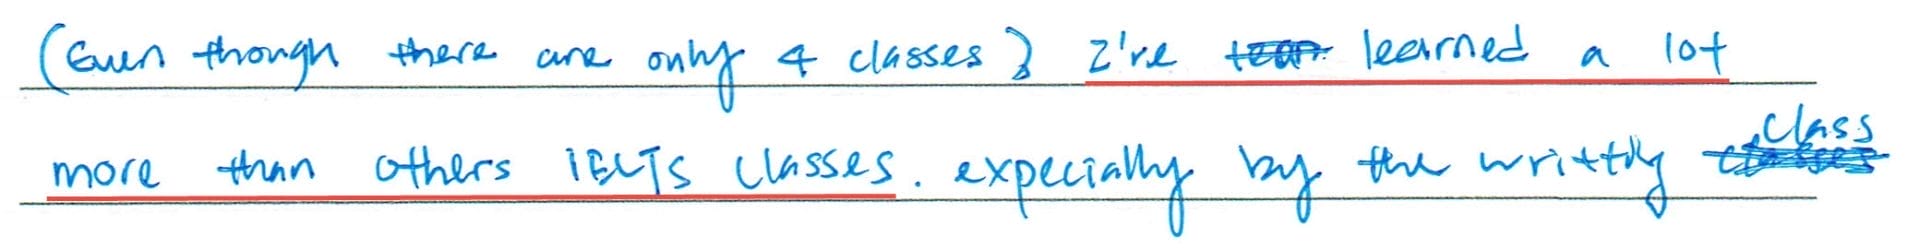 (Even though there are only 4 classes) I've learned a lot
more than others IELTS classes. expecially by the writting class